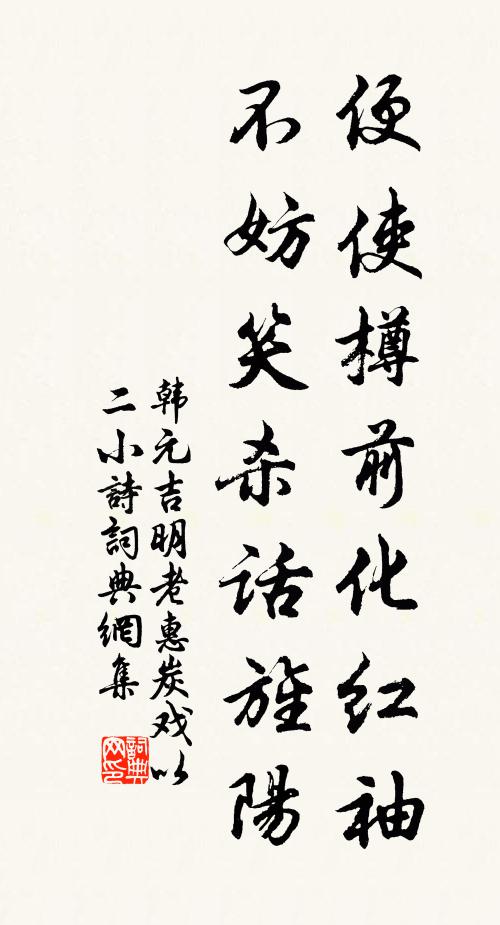 便使樽前化红袖
不妨笑杀话旌陽
韩元吉明老惠炭戏以
二小詩詞典網集
詞典网印